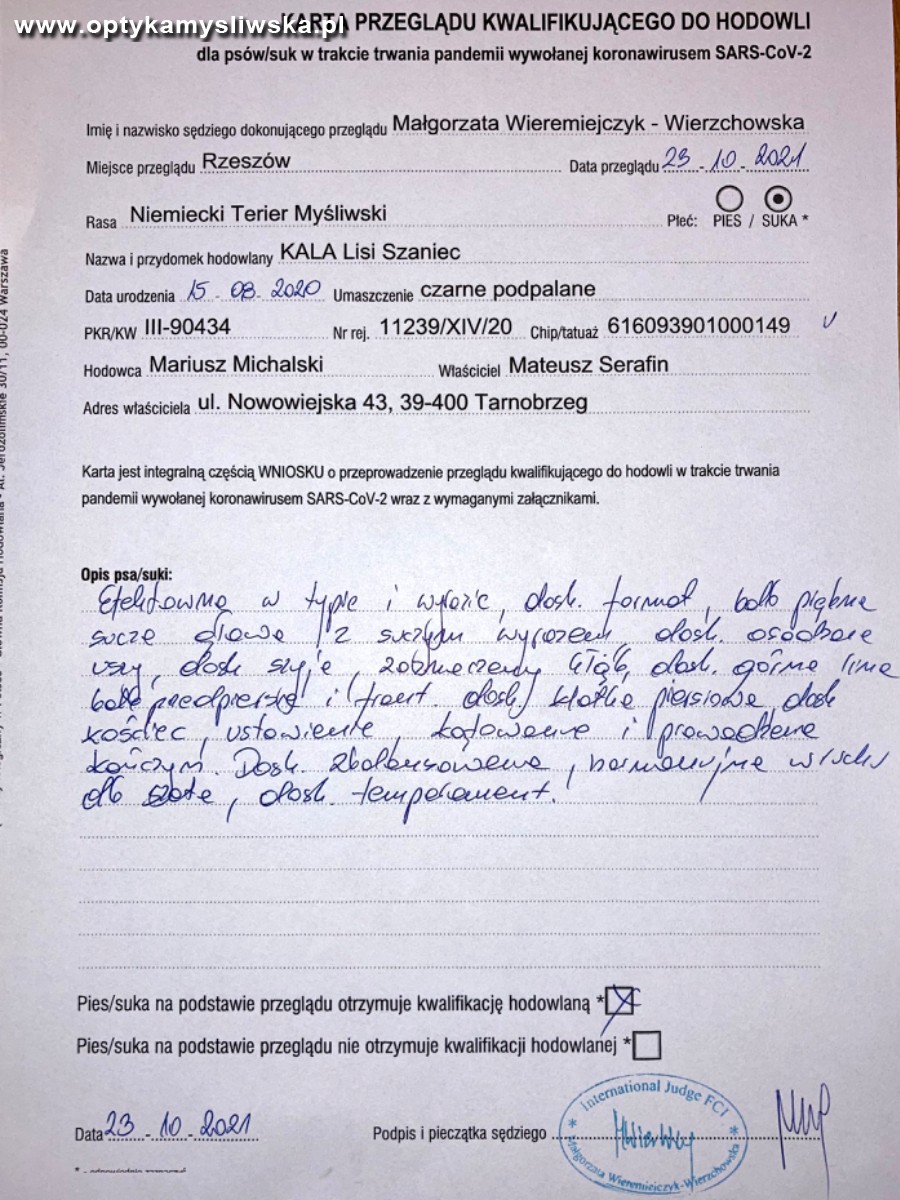 www.optykamysliwska.pl
KARTA PRZEGLĄDU KWALIFIKUJĄCEGO DO HODOWLI
dla psów/suk w trakcie trwania pandemii wywołanej koronawirusem SARS-CoV-2
Imię i nazwisko sędziego dokonującego przeglądu Małgorzata Wieremiejczyk - Wierzchowska
Miejsce przeglądu Rzeszów Data przeglądu 23 - 10 - 2021
Rasa Niemiecki Terier Myśliwski Płeć: PIES / SUKA *
Nazwa i przydomek hodowlany KALA Lisi Szaniec
Data urodzenia 15 - 08 - 2020 Umaszczenie czarne podpalane
PKR/KW III-90434 Nr rej. 11239/XIV/20 Chip/tatuaż 616093901000149
Hodowca Mariusz Michalski Właściciel Mateusz Serafin
Adres właściciela ul. Nowowiejska 43, 39-400 Tarnobrzeg
Karta jest integralną częścią WNIOSKU o przeprowadzenie przeglądu kwalifikującego do hodowli w trakcie trwania
pandemii wywołanej koronawirusem SARS-CoV-2 wraz z wymaganymi załącznikami.
Opis psa/suki:
Efektowna w typie i wyrazie, dosk. format, bdb piękna
sucza głowa z suczym wyrazem, dosk. osadzone
uszy, dosk szyja, zaznaczony kłąb, dosk. górna linia
bdb przedpiersie i front. dosk klatka piersiowa, dosk
kościec, ustawienie, kątowanie i prowadzenie
kończyn. Dosk. zbalansowana, harmonijna w ruchu
db szata, dosk. temperament.
Pies/suka na podstawie przeglądu otrzymuje kwalifikację hodowlaną *
Pies/suka na podstawie przeglądu nie otrzymuje kwalifikacji hodowlanej *
Data 23 - 10 - 2021 Podpis i pieczątka sędziego
International Judge FCI
Małgorzata Wieremiejczyk-Wierzchowska
Al. Jerozolimskie 30/11, 00-024 Warszawa